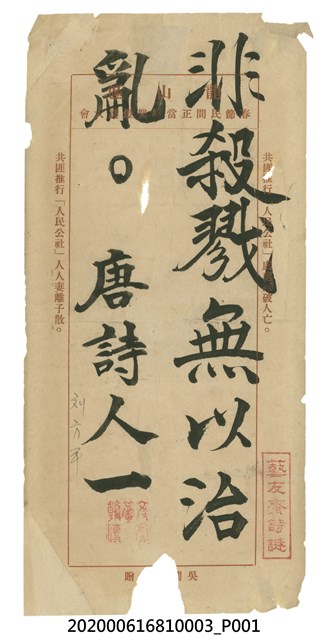 非殺戮無以治
亂。 唐詩人一
山
春節民間正當
會
共匪推行「人民公社」
破人亡。
共匪推行「人民公社」人人妻離子散。
藝友齋詩謎
吳
贈
202000616810003_P001